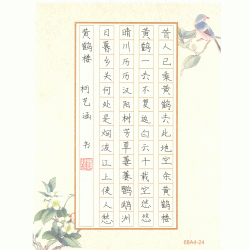 昔人已乘黄鹤去此地空余黄鹤楼
黄鹤一去不复返白云千载空悠悠
晴川历历汉阳树芳草萋萋鹦鹉洲
日暮乡关何处是烟波江上使人愁
黄鹤楼 柯艺涵 书
08A4-24